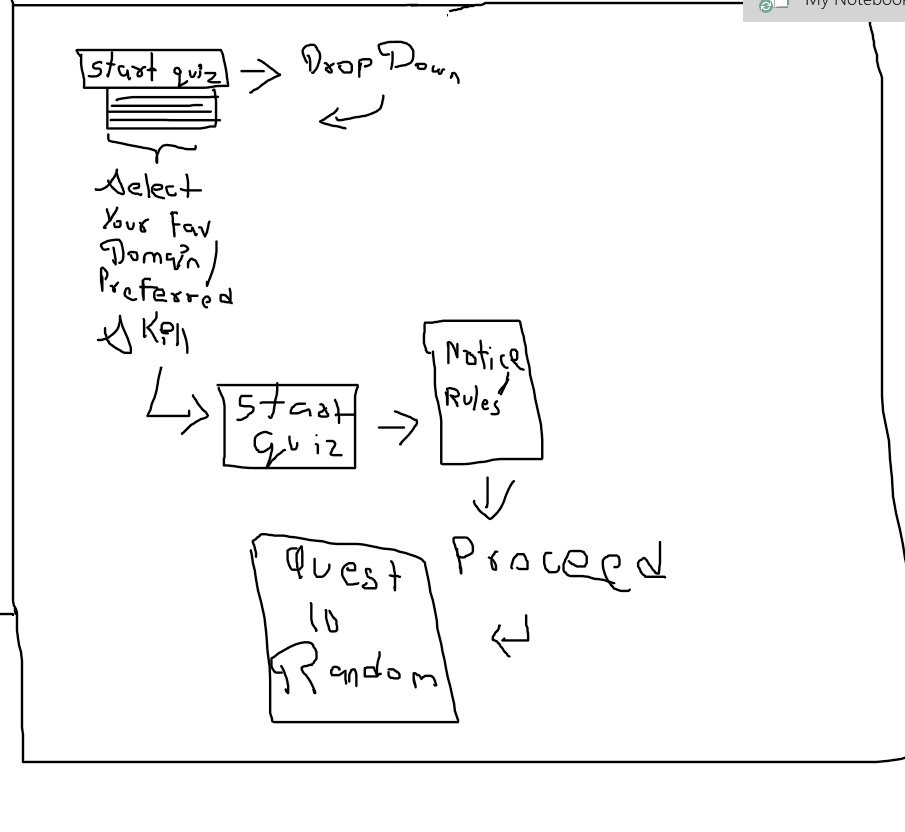 My Notebook
start quiz
Drop Down
Select
Your Fav
Domain/
Preferred
Skill
Start
Quiz
Notice
Rules
Proceed
Quest
10
Random